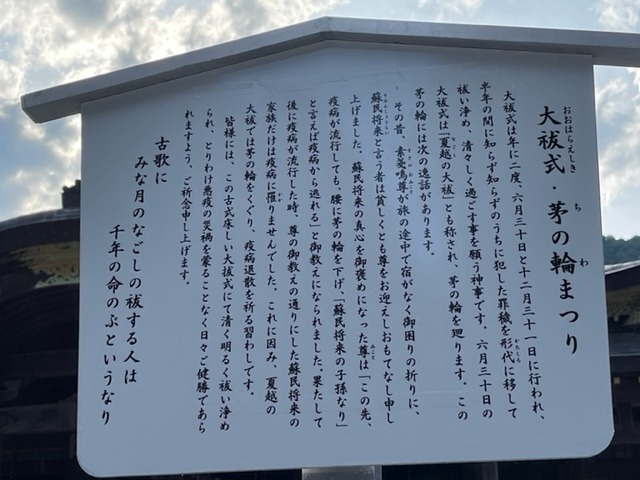 大祓式・茅の輪まつり
大祓式は年に二度、六月三十日と十二月三十一日に行われ、
半年の間に知らず知らずのうちに犯した罪穢を形代に移して
祓い浄め、清々しく過ごす事を願う神事です。六月三十日の
大祓式は「夏越の大祓」とも称され、茅の輪を廻ります。この
茅の輪には次の逸話があります。
その昔、素戔嗚尊が旅の途中で宿がなく御困りの折りに、
蘇民将来と言う者は貧しくとも尊をお迎えしおもてなし申し
上げました。蘇民将来の真心を御褒めになった尊は「この先、
疫病が流行しても、腰に茅の輪を下げ「蘇民将来の子孫なり」
と言えば疫病から逃れる」と御教えになられました。果たして
後に疫病が流行した時、尊の御教えの通りにした蘇民将来の
家族だけは疫病に罹りませんでした。これに因み、夏越の
大祓では茅の輪をくぐり、疫病退散を祈る習わしです。
皆様には、この古式床しい大祓式にて清く明るく祓い浄め
られ、とりわけ悪疫の災禍を蒙ることなく日々ご健勝であら
れますよう、ご祈念申し上げます。
古歌に
みな月のなごしの祓する人は
千年の命のぶというなり